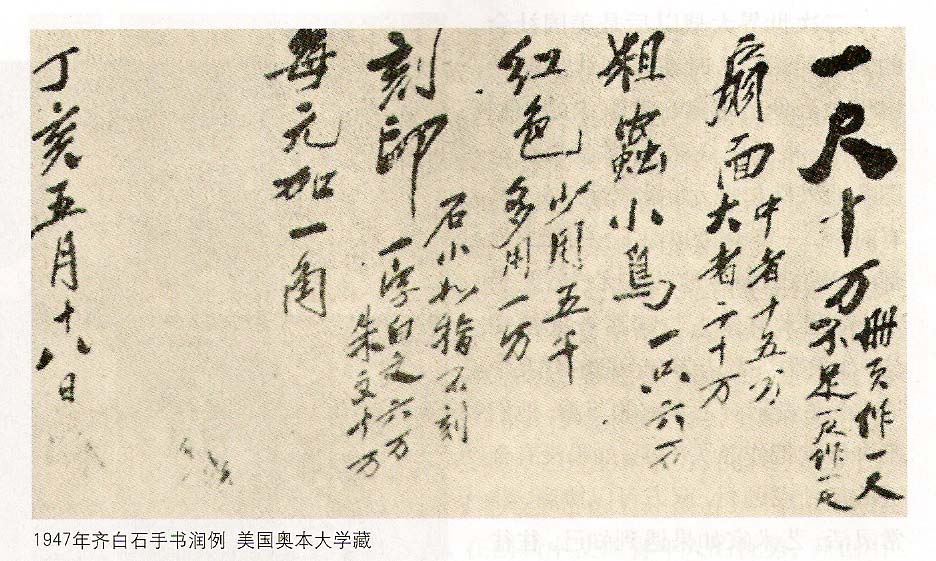 一尺十万
册页作一尺
不足尺作一尺
扇面
中者十五万
大者二十万
粗蟲小鳥
一只六万
红色
少用五千
多用一万
刻印
石小如指不刻
一字白文六万
朱文十万
每元加一角
丁亥五月十八日
1947年齐白石手书润例 美国奥本大学藏